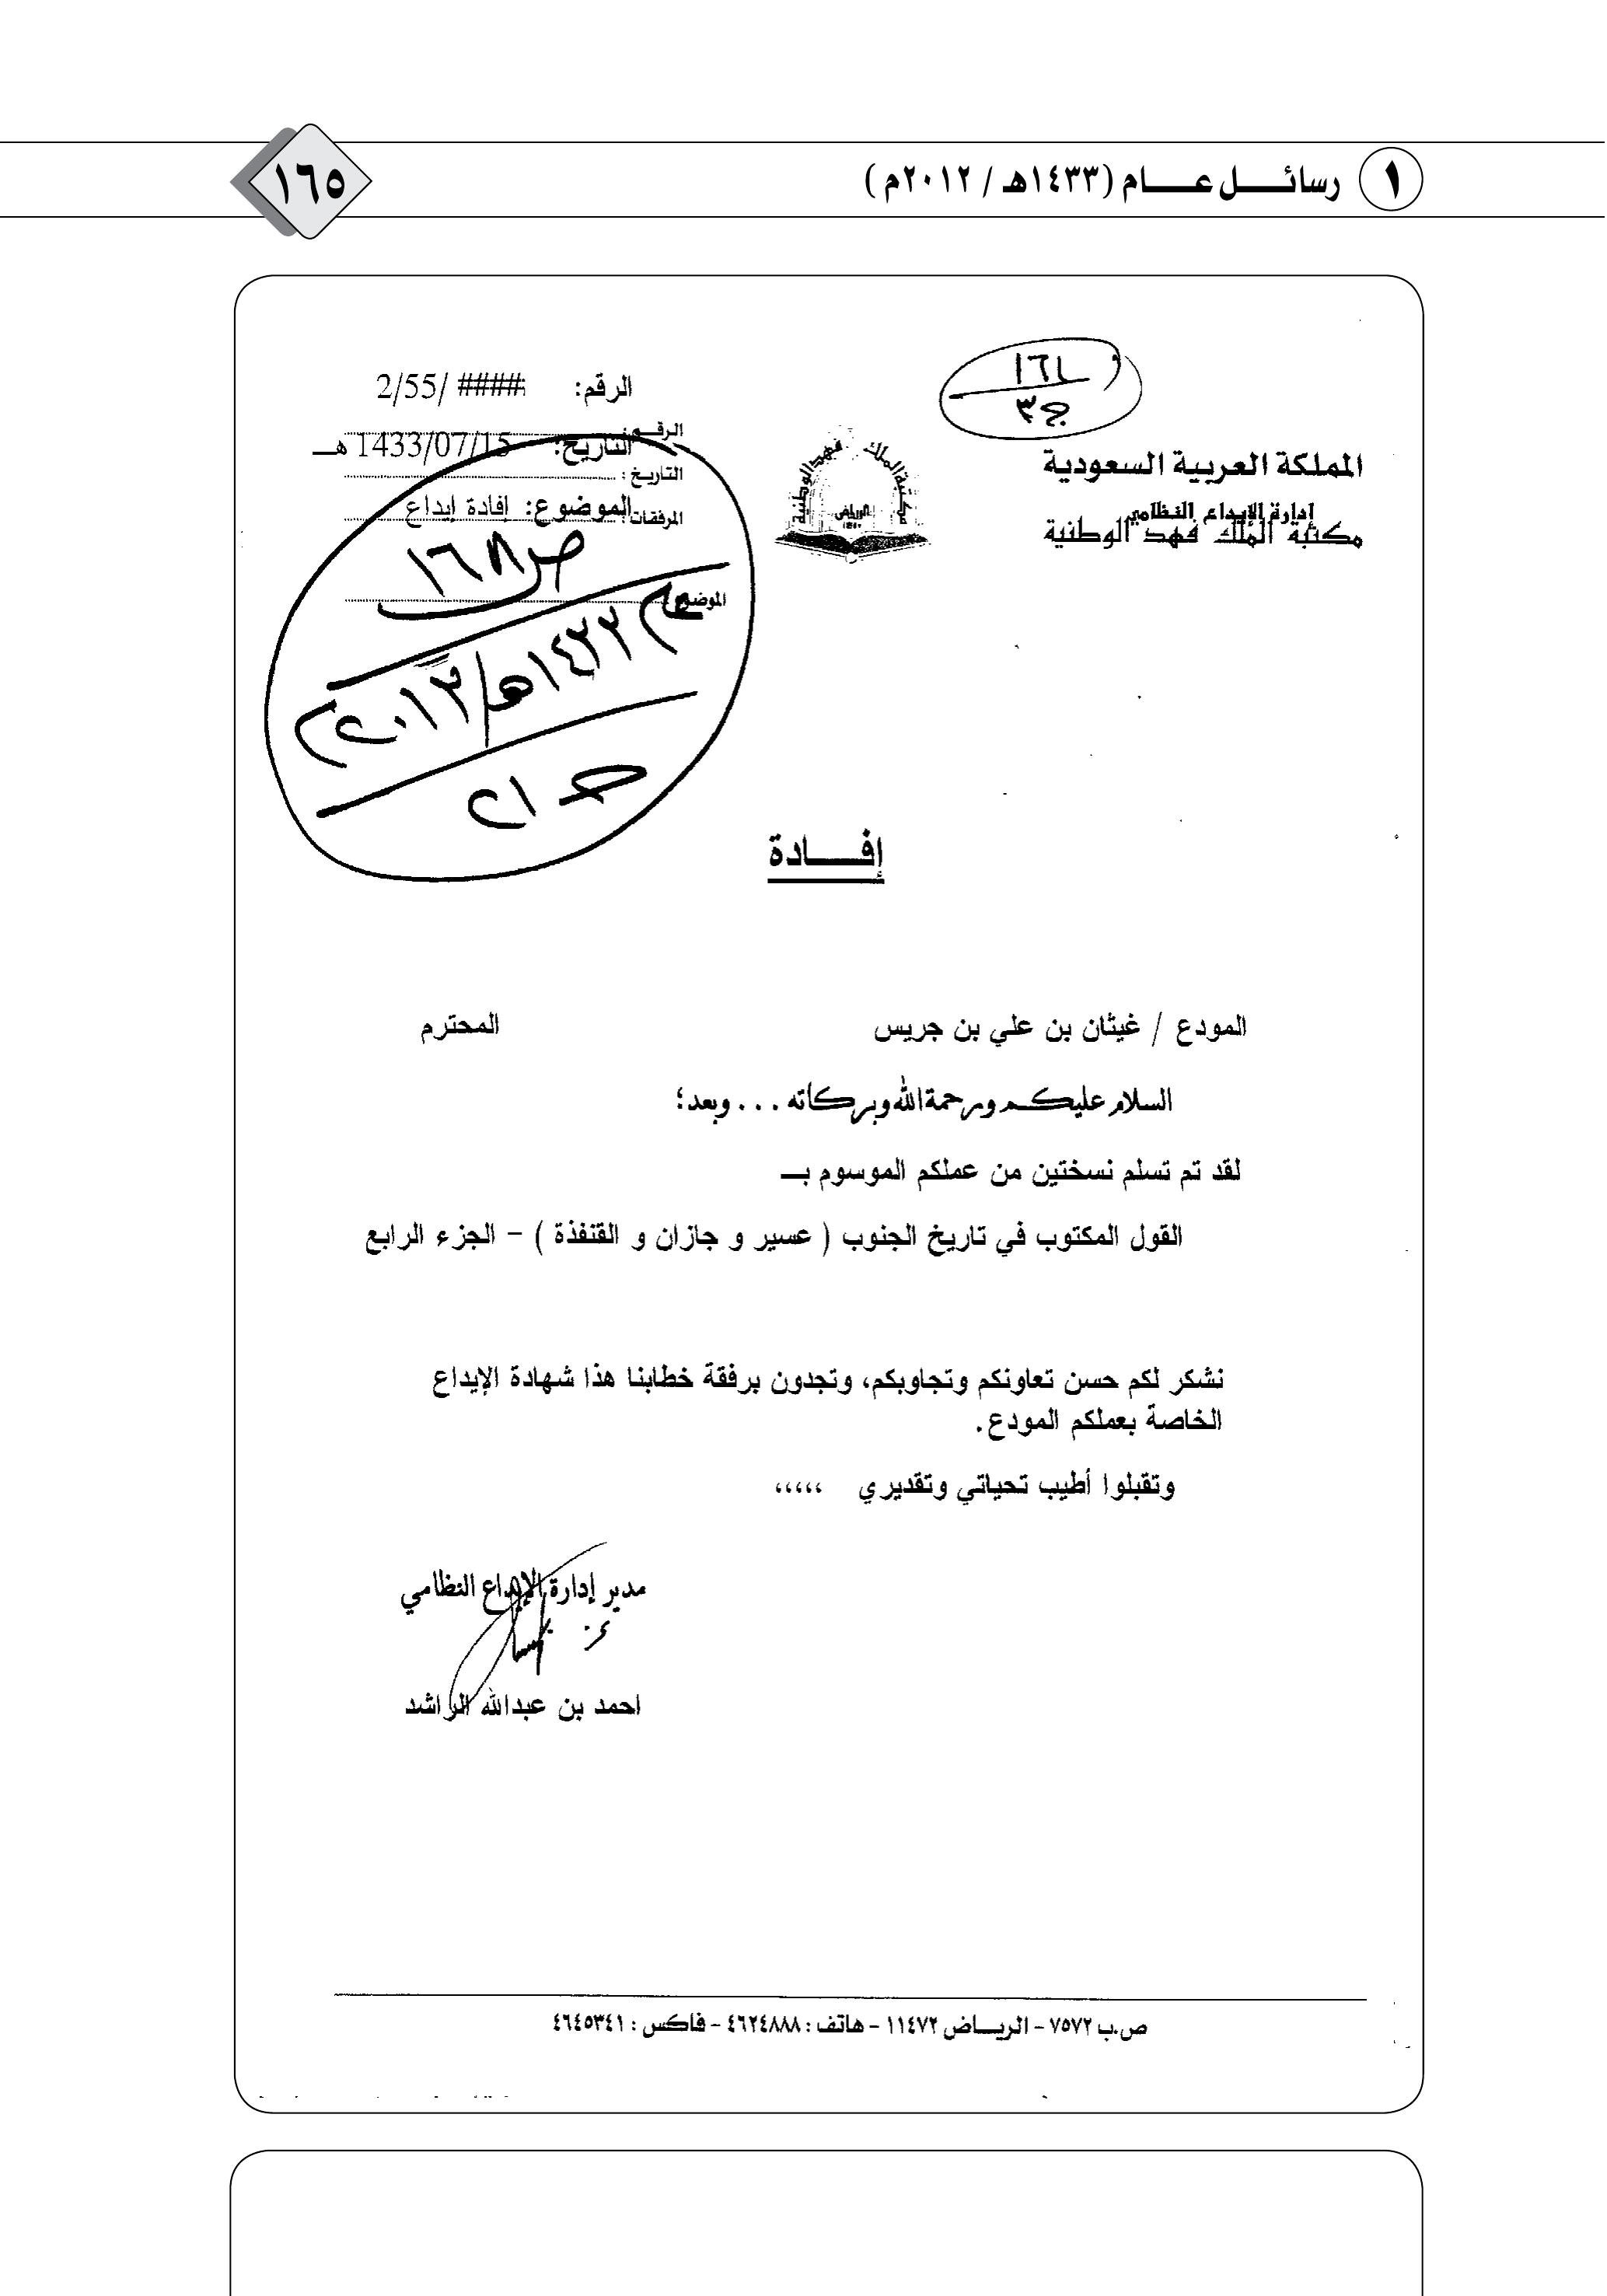 ١ رسائل عام (١٤٣٣هـ / ٢٠١٢م)
١٦٥
المملكة العربية السعودية
إدارة الإيداع النظامي
مكتبة الملك فهد الوطنية
مكتبة الملك فهد الوطنية
الرياض
الرقم: 2/55/ ####
الرقم :
التاريخ: 1433/07/15 هـ
التاريخ :
الموضوع: إفادة إيداع
المرفقات :
الموضوع :
ص ١٦٨
إفــادة
المودع / غيثان بن علي بن جريس المحترم
السلام عليكم ورحمة الله وبركاته . . . وبعد؛
لقد تم تسلم نسختين من عملكم الموسوم بـ
القول المكتوب في تاريخ الجنوب ( عسير و جازان و القنفذة ) - الجزء الرابع
نشكر لكم حسن تعاونكم وتجاوبكم، وتجدون برفقة خطابنا هذا شهادة الإيداع
الخاصة بعملكم المودع.
وتقبلوا أطيب تحياتي وتقديري ،،،،،
مدير إدارة الإيداع النظامي
احمد بن عبدالله الراشد
ص.ب ٧٥٧٢ - الرياض ١١٤٧٢ - هاتف : ٤٦٢٤٨٨٨ - فاكس : ٤٦٤٥٣٤١